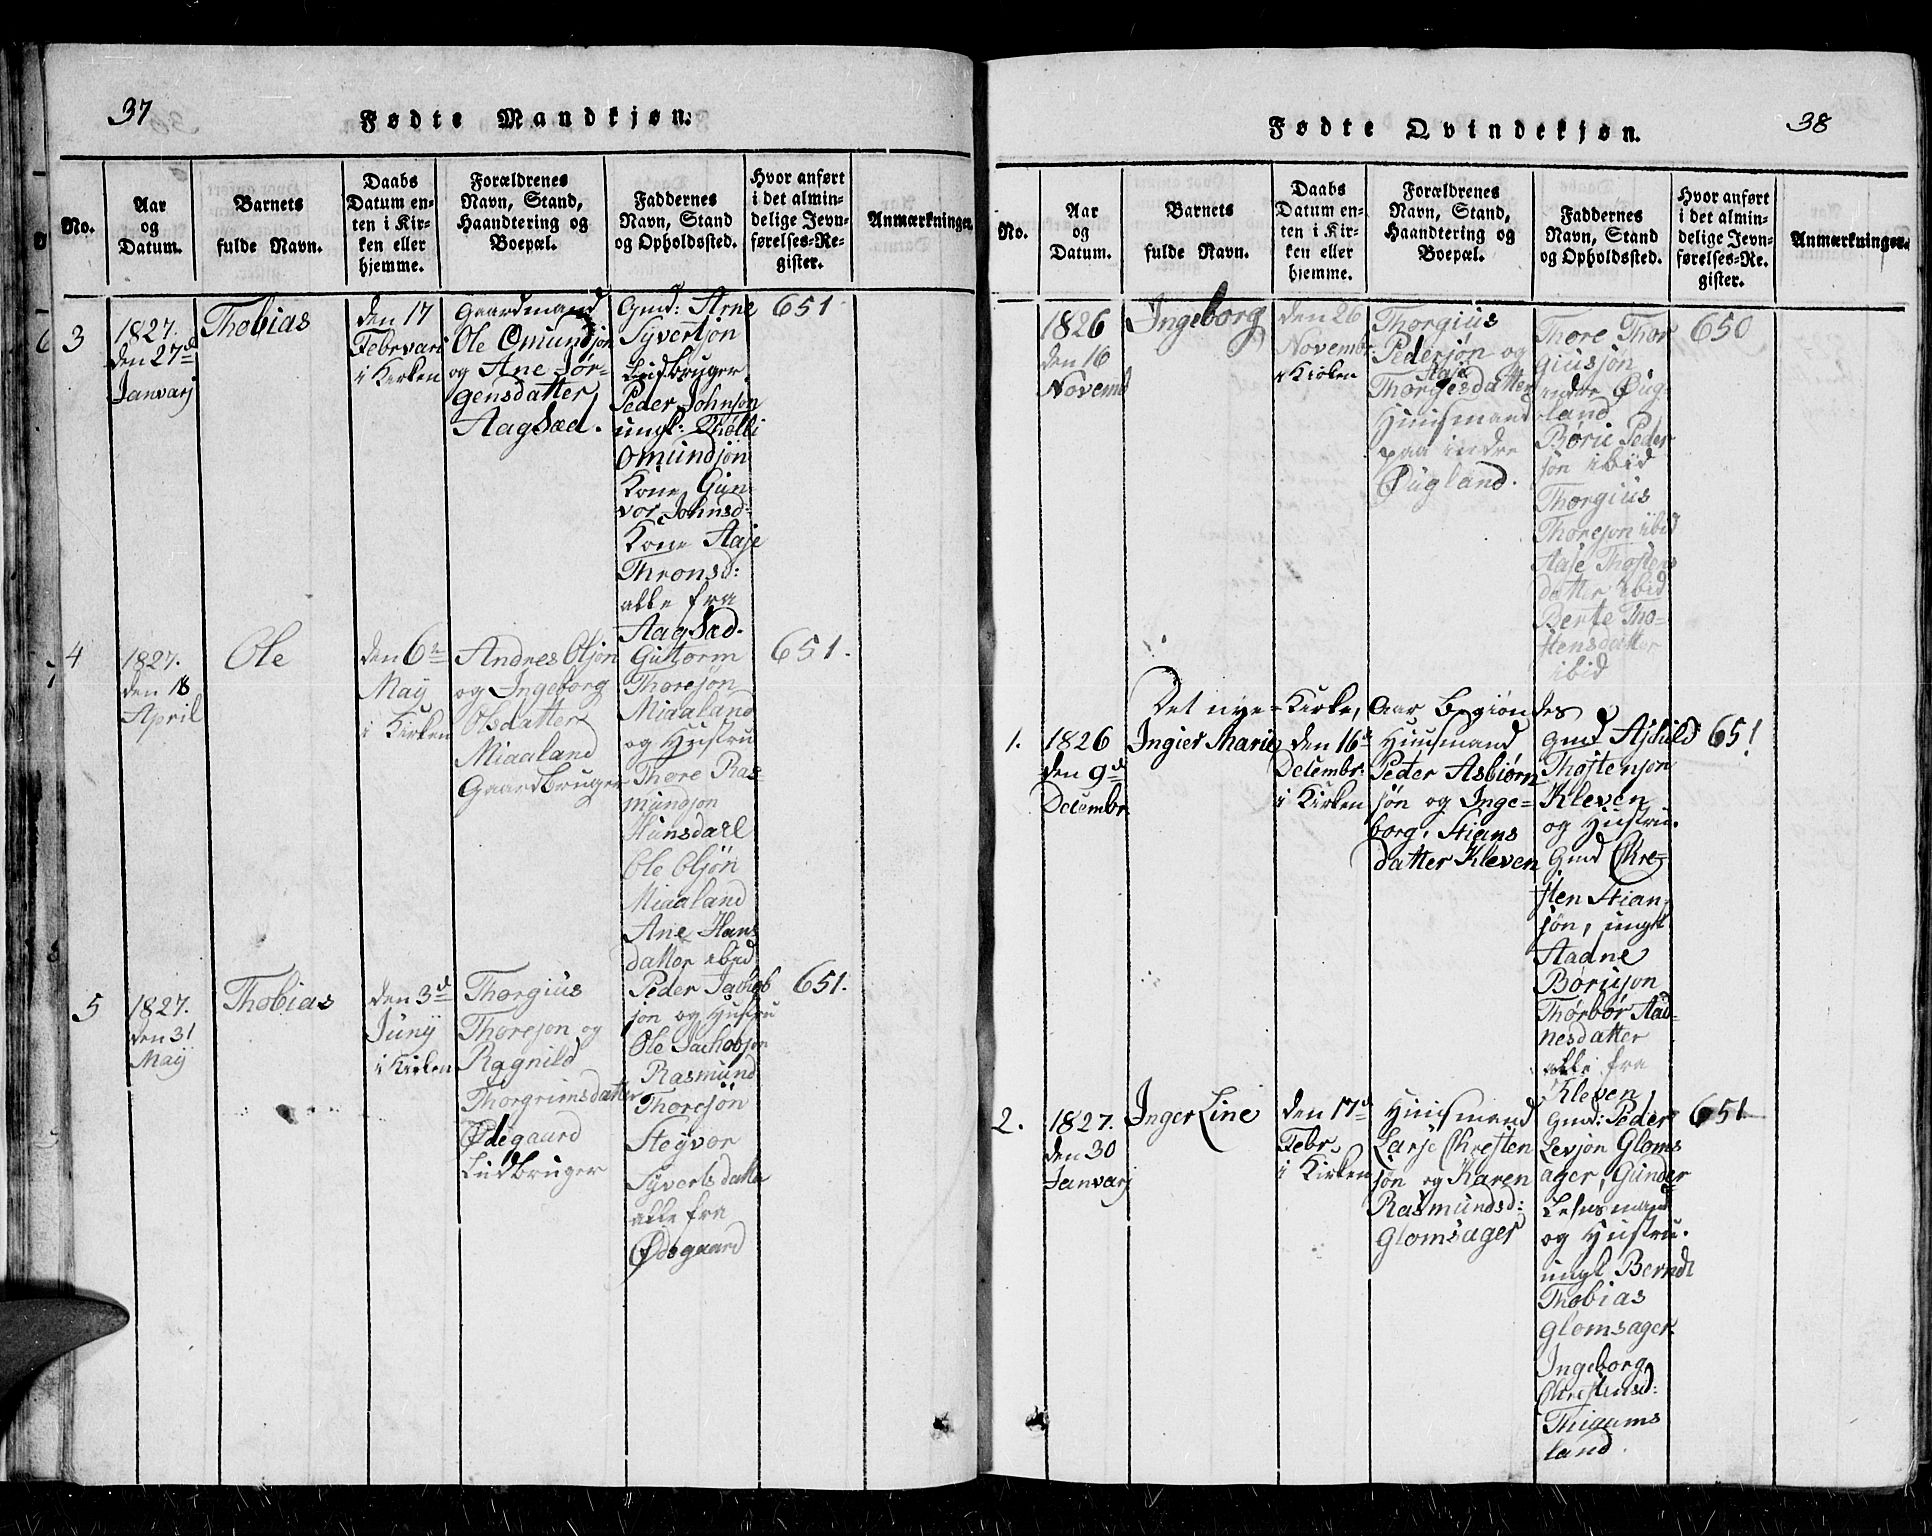 37
Fødte Mandkjøn.
No.
Aar
og
Datum.
Barnets
fulde Navn.
Daabs
Datum en-
ten i Kir-
ken eller
hjemme.
Forældrenes
Navn, Stand,
Haandtering og
Boepæl.
Faddernes
Navn, Stand
og Opholdssted.
Hvor anført
i det almin-
delige Jevn-
førelses-Re-
gister.
Anmærkninger.
3
1827.
den 27d
Janvarj
Thobias
den 17
Febrvari
i Kirken
Gaardmand
Ole Omundsøn
og Ane Jør-
gensdatter
Aagdæd.
Gmd: Arne
Syvertson
Leidbruger
Peder Johnson
ungk: Thølli
Omundsøn
Kone Gun
vor Johnsd=
Kone Aase
Thronsd:
alle fra
Aagdæd.
651
4
1827.
den 18
April
Ole
den 6te
May
i Kirken
Andres Olsøn
og Ingeborg
Olsdatter
Miaaland
Gaardbruger
Guttorm
Thoresøn
Miaaland
og Hustru
Thore Ras
mundson
Hunsdael
Ole Olsøn
Miaaland
Ane Hans
datter ibid
651.
5
1827.
den 31
Maij
Thobias
den 3d
Junij
i Kirken
Thorgius
Thoreson og
Ragnild
Thorgrimsdatter
Ødegaard
Leidbruger
Peder Jachob
son og Hustru
Ole Jachobson
Rasmund
Thoresøn
Stegvor
Syvertsdatter
alle fra
Ødegaard
651.
38
Fødte Qvindekjøn.
No.
Aar
og
Datum.
Barnets
fulde Navn.
Daabs
Datum en-
ten i Kir-
ken eller
hjemme.
Forældrenes
Navn, Stand,
Haandtering og
Boepæl.
Faddernes
Navn, Stand
og Opholdssted.
Hvor anført
i det almin-
delige Jevn-
førelses-Re-
gister.
Anmærkninger.
1826
den 16
Novemb
Ingeborg
den 26
Novembr.
i Kirken
Thorgius
Pedersøn og
Aase
Thorgesdatter
Huusmand
paa indre
Øugland.
Thore Thor
giussøn
indre Øug-
land
Børie Peder
søn ibid
Thorgius
Thoreson ibid
Aase Thostens
datter ibid
Berte Tho-
stensdatter
ibid
650
Det nye Kirke, Aar begiøndes
1.
1826
den 9d
Decembr
Ingier Marie
den 16d
Decembr:
i Kirken
Huusmand
Peder Asbiørn
søn og Inge-
borg Stians
datter Kleven
Gmd Asuld
Thostenson
Kleven
og Hustru.
Gmd Chre-
sten Stian
søn, ungk
Aadne
Børiuson
Thorbør Aad-
nesdatter
alle fra
Kleven
651
2.
1827.
den 30
Janvarj
Inger Line
den 17d
Febr
i Kirken
Huusmand
Larse Chresten
søn og Karen
Rasmundsd:
Glomsager
Gmd: Peder
Levson Gloms
ager, Gunder
Lehnsmand
og Hustru.
ungk Berndt
Thobias
Glomsager
Ingeborg
Chrestensd:
Thigums
land.
651